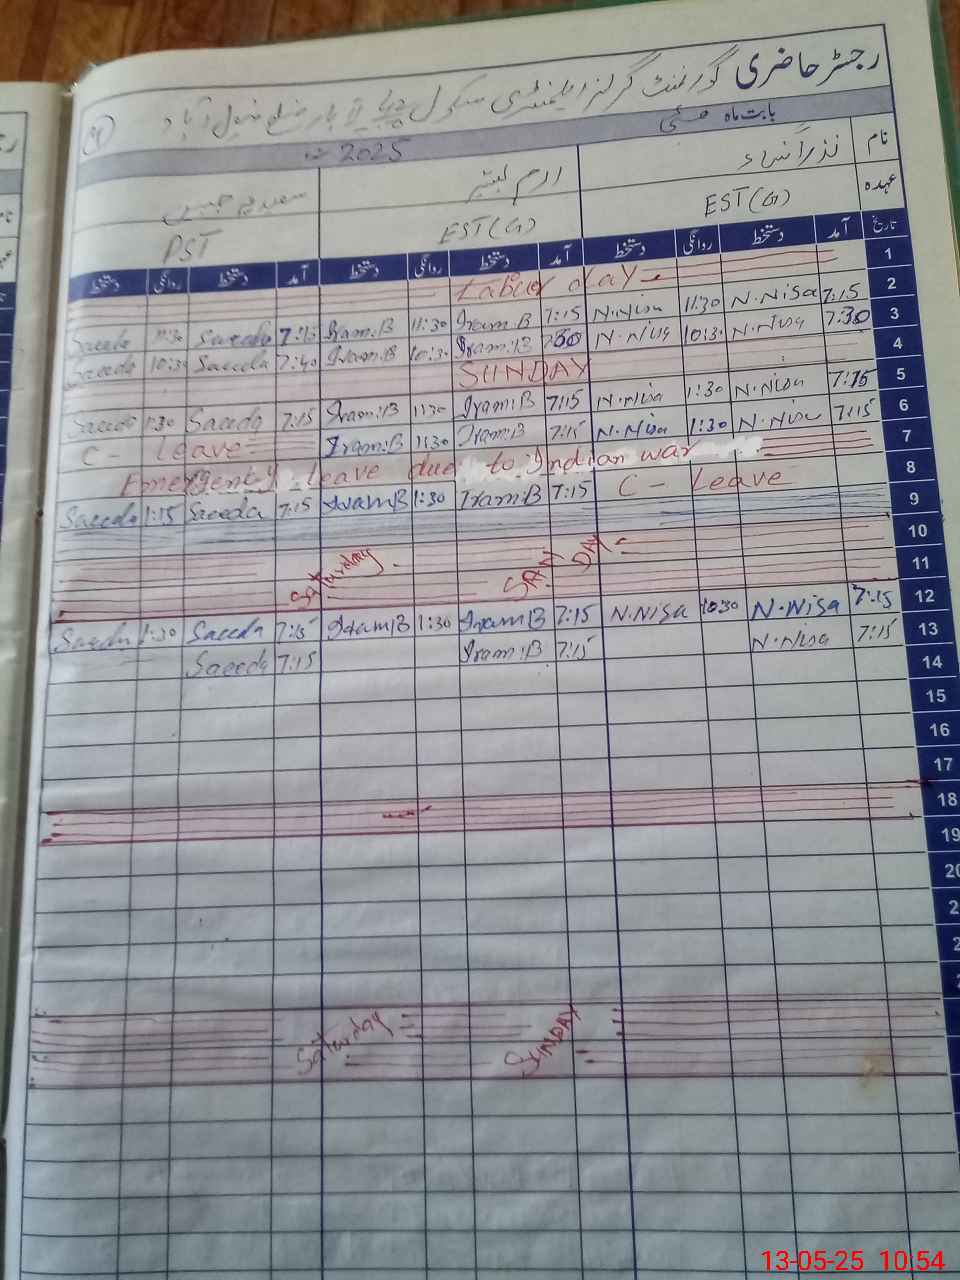 رجسٹر حاضری گورنمنٹ گرلز ایلیمنٹری سکول
بابت ماہ مئی 2025
نام
عہدہ EST(G) EST(G) PST
تاریخ آمد دستخط روانگی دستخط آمد دستخط روانگی دستخط آمد دستخط روانگی دستخط
1 Labour day
2 7:15 N.Nisa 11:30 N.Nisa 7:15 Iram:B 11:30 Iram:B 7:15 Saeeda 11:30 Saeeda
3 7:30 N.Nisa 10:30 N.Nisa 7:30 Iram:B 10:30 Iram:B 7:40 Saeeda 10:30 Saeeda
4 SUNDAY
5 7:15 N.Nisa 1:30 N.Nisa 7:15 Iram:B 1:30 Iram:B 7:15 Saeeda 1:30 Saeeda
6 7:15 N.Nisa 1:30 N.Nisa 7:15 Iram:B 1:30 Iram:B C- Leave
7 Emergency leave due to Indian war
8 C- Leave 7:15 Iram:B 1:30 Iram:B 7:15 Saeeda 1:15 Saeeda
9
10 Saturday
11 SUNDAY
12 7:15 N.Nisa 10:30 N.Nisa 7:15 Iram:B 1:30 Iram:B 7:15 Saeeda 1:30 Saeeda
13 7:15 N.Nisa 7:15 Iram:B 7:15 Saeeda
14
15
16
17
18
19
20
2
2
Saturday SUNDAY
13-05-25 10:54